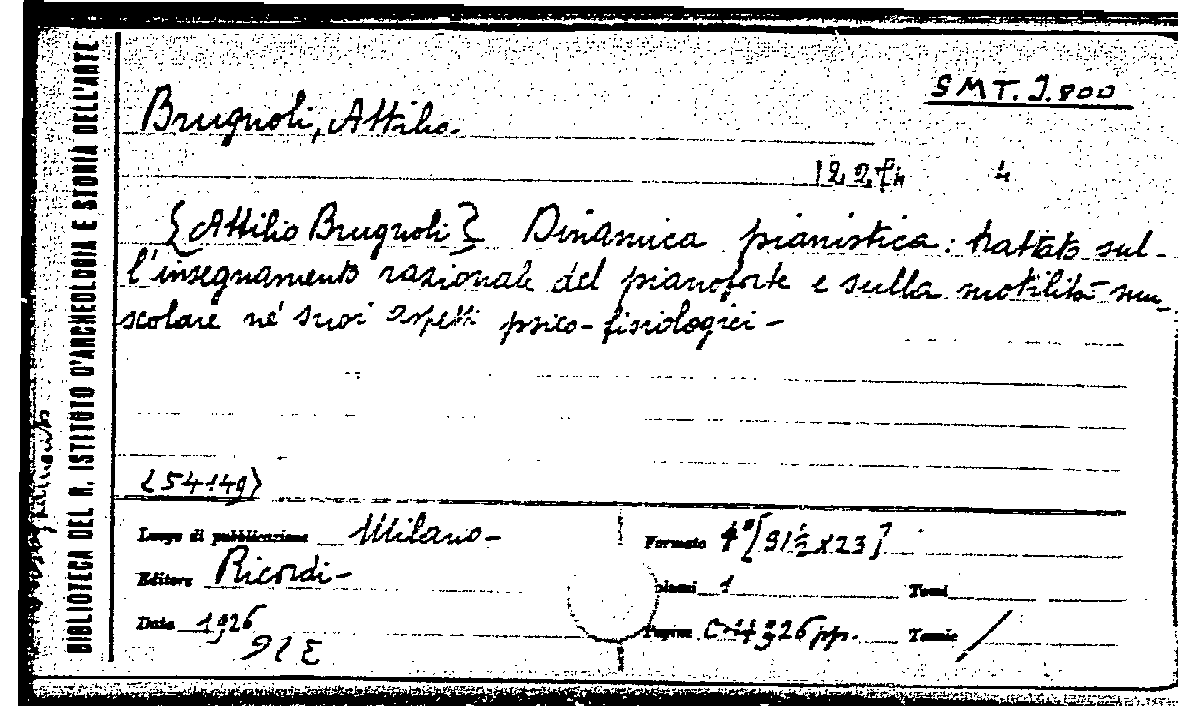 BIBLIOTECA DEL R. ISTITUTO D'ARCHEOLOGIA E STORIA DELL'ARTE
SMT. J. 800
Brugnoli, Attilio.
4
{Attilio Brugnoli} Dinamica pianistica: trattato sul-
l'insegnamento razionale del pianoforte e sulla motilità mu-
scolare ne' suoi aspetti psico-fisiologici -
<54149>
Luogo di pubblicazione Milano -
Formato 4° [31½ x 23]
Editore Ricordi -
Volumi 1 Tomi
Data 1926
Pagine 326 pp. Tavole /